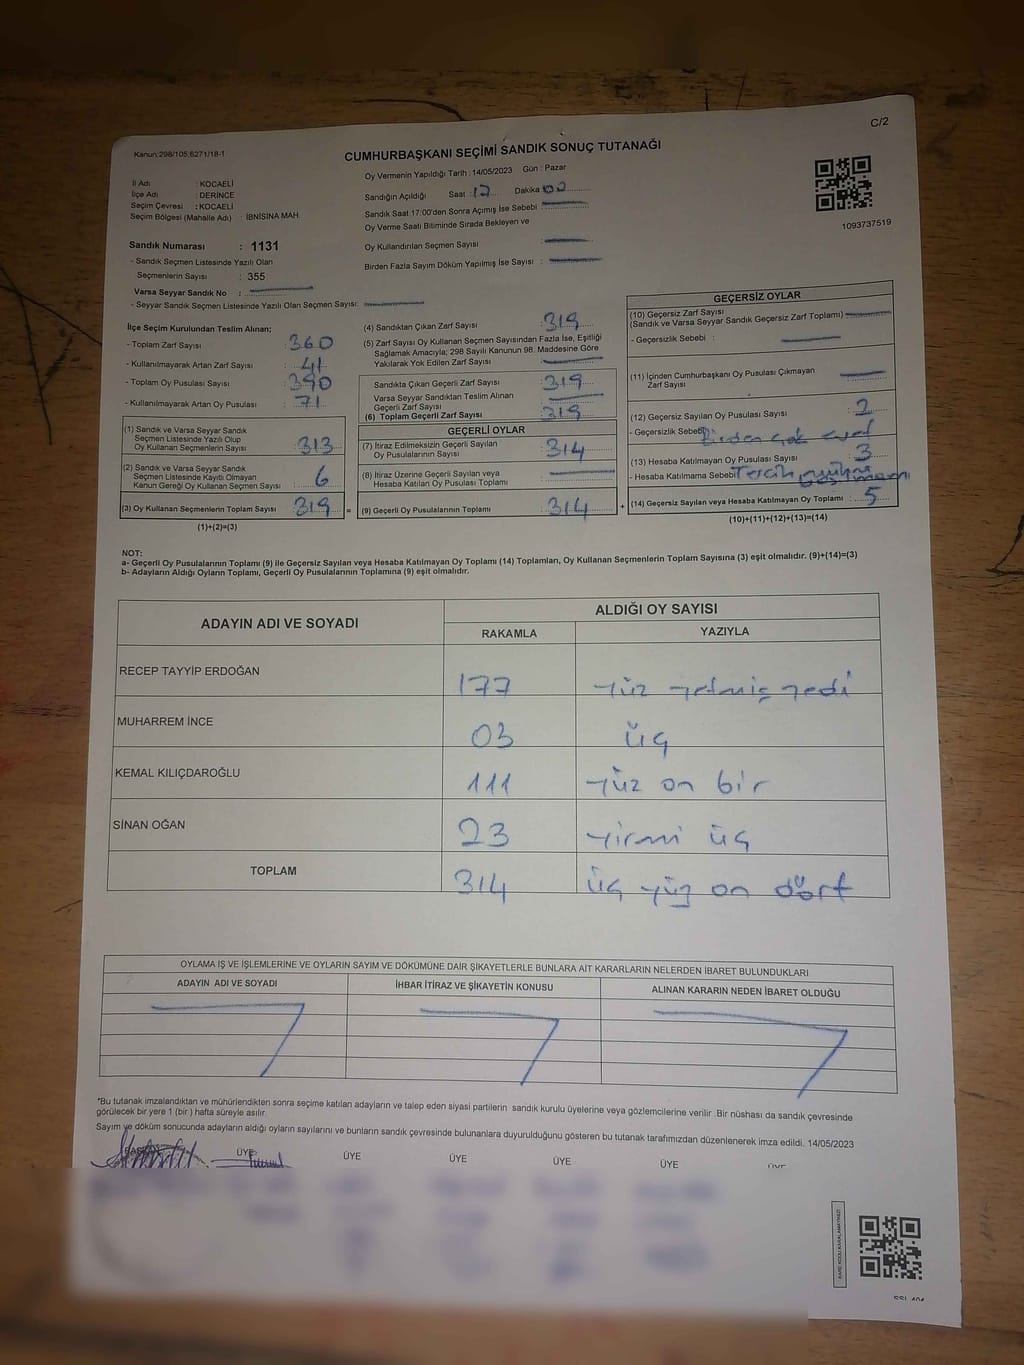 C/2
Kanun:298/105,6271/18-1
CUMHURBAŞKANI SEÇİMİ SANDIK SONUÇ TUTANAĞI
İl Adı : KOCAELİ
İlçe Adı : DERİNCE
Seçim Çevresi : KOCAELİ
Seçim Bölgesi (Mahalle Adı) : İBNİSİNA MAH.
Sandık Numarası : 1131
- Sandık Seçmen Listesinde Yazılı Olan
Seçmenlerin Sayısı : 355
Varsa Seyyar Sandık No :
- Seyyar Sandık Seçmen Listesinde Yazılı Olan Seçmen Sayısı:
Oy Vermenin Yapıldığı Tarih : 14/05/2023 Gün : Pazar
Sandığın Açıldığı Saat : 17 Dakika : 00
Sandık Saat 17:00'den Sonra Açımış İse Sebebi
Oy Verme Saati Bitiminde Sırada Bekleyen ve
Oy Kullandırılan Seçmen Sayısı :
Birden Fazla Sayım Döküm Yapılmış İse Sayısı :
1093737519
İlçe Seçim Kurulundan Teslim Alınan;
- Toplam Zarf Sayısı : 360
- Kullanılmayarak Artan Zarf Sayısı : 41
- Toplam Oy Pusulası Sayısı : 390
- Kullanılmayarak Artan Oy Pusulası : 71
(1) Sandık ve Varsa Seyyar Sandık
Seçmen Listesinde Yazılı Olup
Oy Kullanan Seçmenlerin Sayısı : 313
(2) Sandık ve Varsa Seyyar Sandık
Seçmen Listesinde Kayıtlı Olmayan
Kanun Gereği Oy Kullanan Seçmen Sayısı : 6
(3) Oy Kullanan Seçmenlerin Toplam Sayısı : 319 =
(1)+(2)=(3)
(4) Sandıktan Çıkan Zarf Sayısı : 319
(5) Zarf Sayısı Oy Kullanan Seçmen Sayısından Fazla İse, Eşitliği
Sağlamak Amacıyla; 298 Sayılı Kanunun 98. Maddesine Göre
Yakılarak Yok Edilen Zarf Sayısı :
Sandıkta Çıkan Geçerli Zarf Sayısı : 319
Varsa Seyyar Sandıktan Teslim Alınan
Geçerli Zarf Sayısı :
(6) Toplam Geçerli Zarf Sayısı : 319
GEÇERLİ OYLAR
(7) İtiraz Edilmeksizin Geçerli Sayılan
Oy Pusulalarının Sayısı : 314
(8) İtiraz Üzerine Geçerli Sayılan veya
Hesaba Katılan Oy Pusulası Toplamı :
(9) Geçerli Oy Pusulalarının Toplamı : 314 +
GEÇERSİZ OYLAR
(10) Geçersiz Zarf Sayısı
(Sandık ve Varsa Seyyar Sandık Geçersiz Zarf Toplamı)
- Geçersizlik Sebebi :
(11) İçinden Cumhurbaşkanı Oy Pusulası Çıkmayan
Zarf Sayısı
(12) Geçersiz Sayılan Oy Pusulası Sayısı : 2
- Geçersizlik Sebebi: Birden çok evet
(13) Hesaba Katılmayan Oy Pusulası Sayısı : 3
- Hesaba Katılmama Sebebi Tercih mührü
(14) Geçersiz Sayılan veya Hesaba Katılmayan Oy Toplamı : 5
(10)+(11)+(12)+(13)=(14)
NOT:
a- Geçerli Oy Pusulalarının Toplamı (9) ile Geçersiz Sayılan veya Hesaba Katılmayan Oy Toplamı (14) Toplamları, Oy Kullanan Seçmenlerin Toplam Sayısına (3) eşit olmalıdır. (9)+(14)=(3)
b- Adayların Aldığı Oyların Toplamı, Geçerli Oy Pusulalarının Toplamına (9) eşit olmalıdır.
ADAYIN ADI VE SOYADI
ALDIĞI OY SAYISI
RAKAMLA YAZIYLA
RECEP TAYYİP ERDOĞAN 177 yüz yetmiş yedi
MUHARREM İNCE 03 üç
KEMAL KILIÇDAROĞLU 111 yüz on bir
SİNAN OĞAN 23 yirmi üç
TOPLAM 314 üç yüz on dört
OYLAMA İŞ VE İŞLEMLERİNE VE OYLARIN SAYIM VE DÖKÜMÜNE DAİR ŞİKAYETLERLE BUNLARA AİT KARARLARIN NELERDEN İBARET BULUNDUKLARI
ADAYIN ADI VE SOYADI İHBAR İTİRAZ VE ŞİKAYETİN KONUSU ALINAN KARARIN NEDEN İBARET OLDUĞU
*Bu tutanak imzalandıktan ve mühürlendikten sonra seçime katılan adayların ve talep eden siyasi partilerin sandık kurulu üyelerine veya gözlemcilerine verilir. Bir nüshası da sandık çevresinde
görülecek bir yere 1 (bir ) hafta süreyle asılır.
Sayım ve döküm sonucunda adayların aldığı oyların sayılarını ve bunların sandık çevresinde bulunanlara duyurulduğunu gösteren bu tutanak tarafımızdan düzenlenerek imza edildi. 14/05/2023
BAŞKAN ÜYE ÜYE ÜYE ÜYE ÜYE ÜYE
KARE KODU KARALAMAYINIZ!